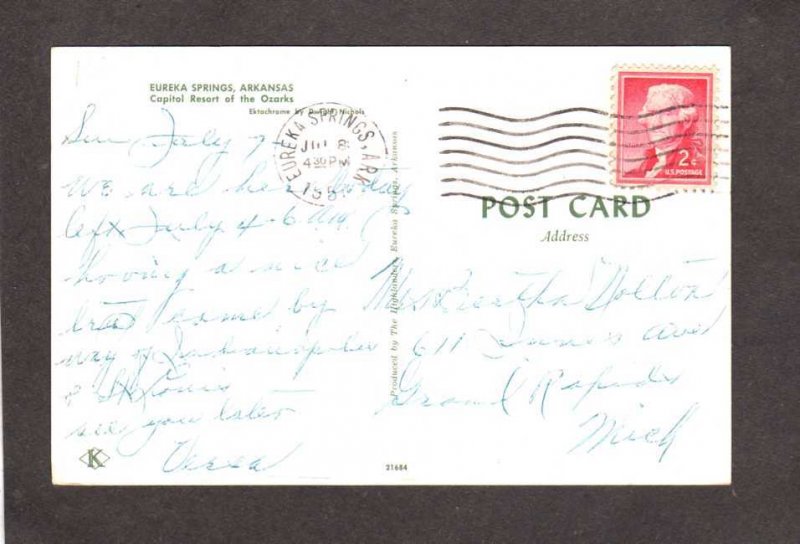 EUREKA SPRINGS, ARKANSAS
Capitol Resort of the Ozarks
Ektachrome by Dwight Nichols
Sun July 7
we are here today
left July 4 - 6 AM
having a nice
came by
way of Indianapolis
& St Louis
see you later
EUREKA SPRINGS, ARK
JUL 8
4 30 PM
2¢
U.S. POSTAGE
POST CARD
Address
Bertha Nolton
611 Innes Ave
Grand Rapids
Mich
Produced by The Highlanders, Eureka Springs, Arkansas
K
21684